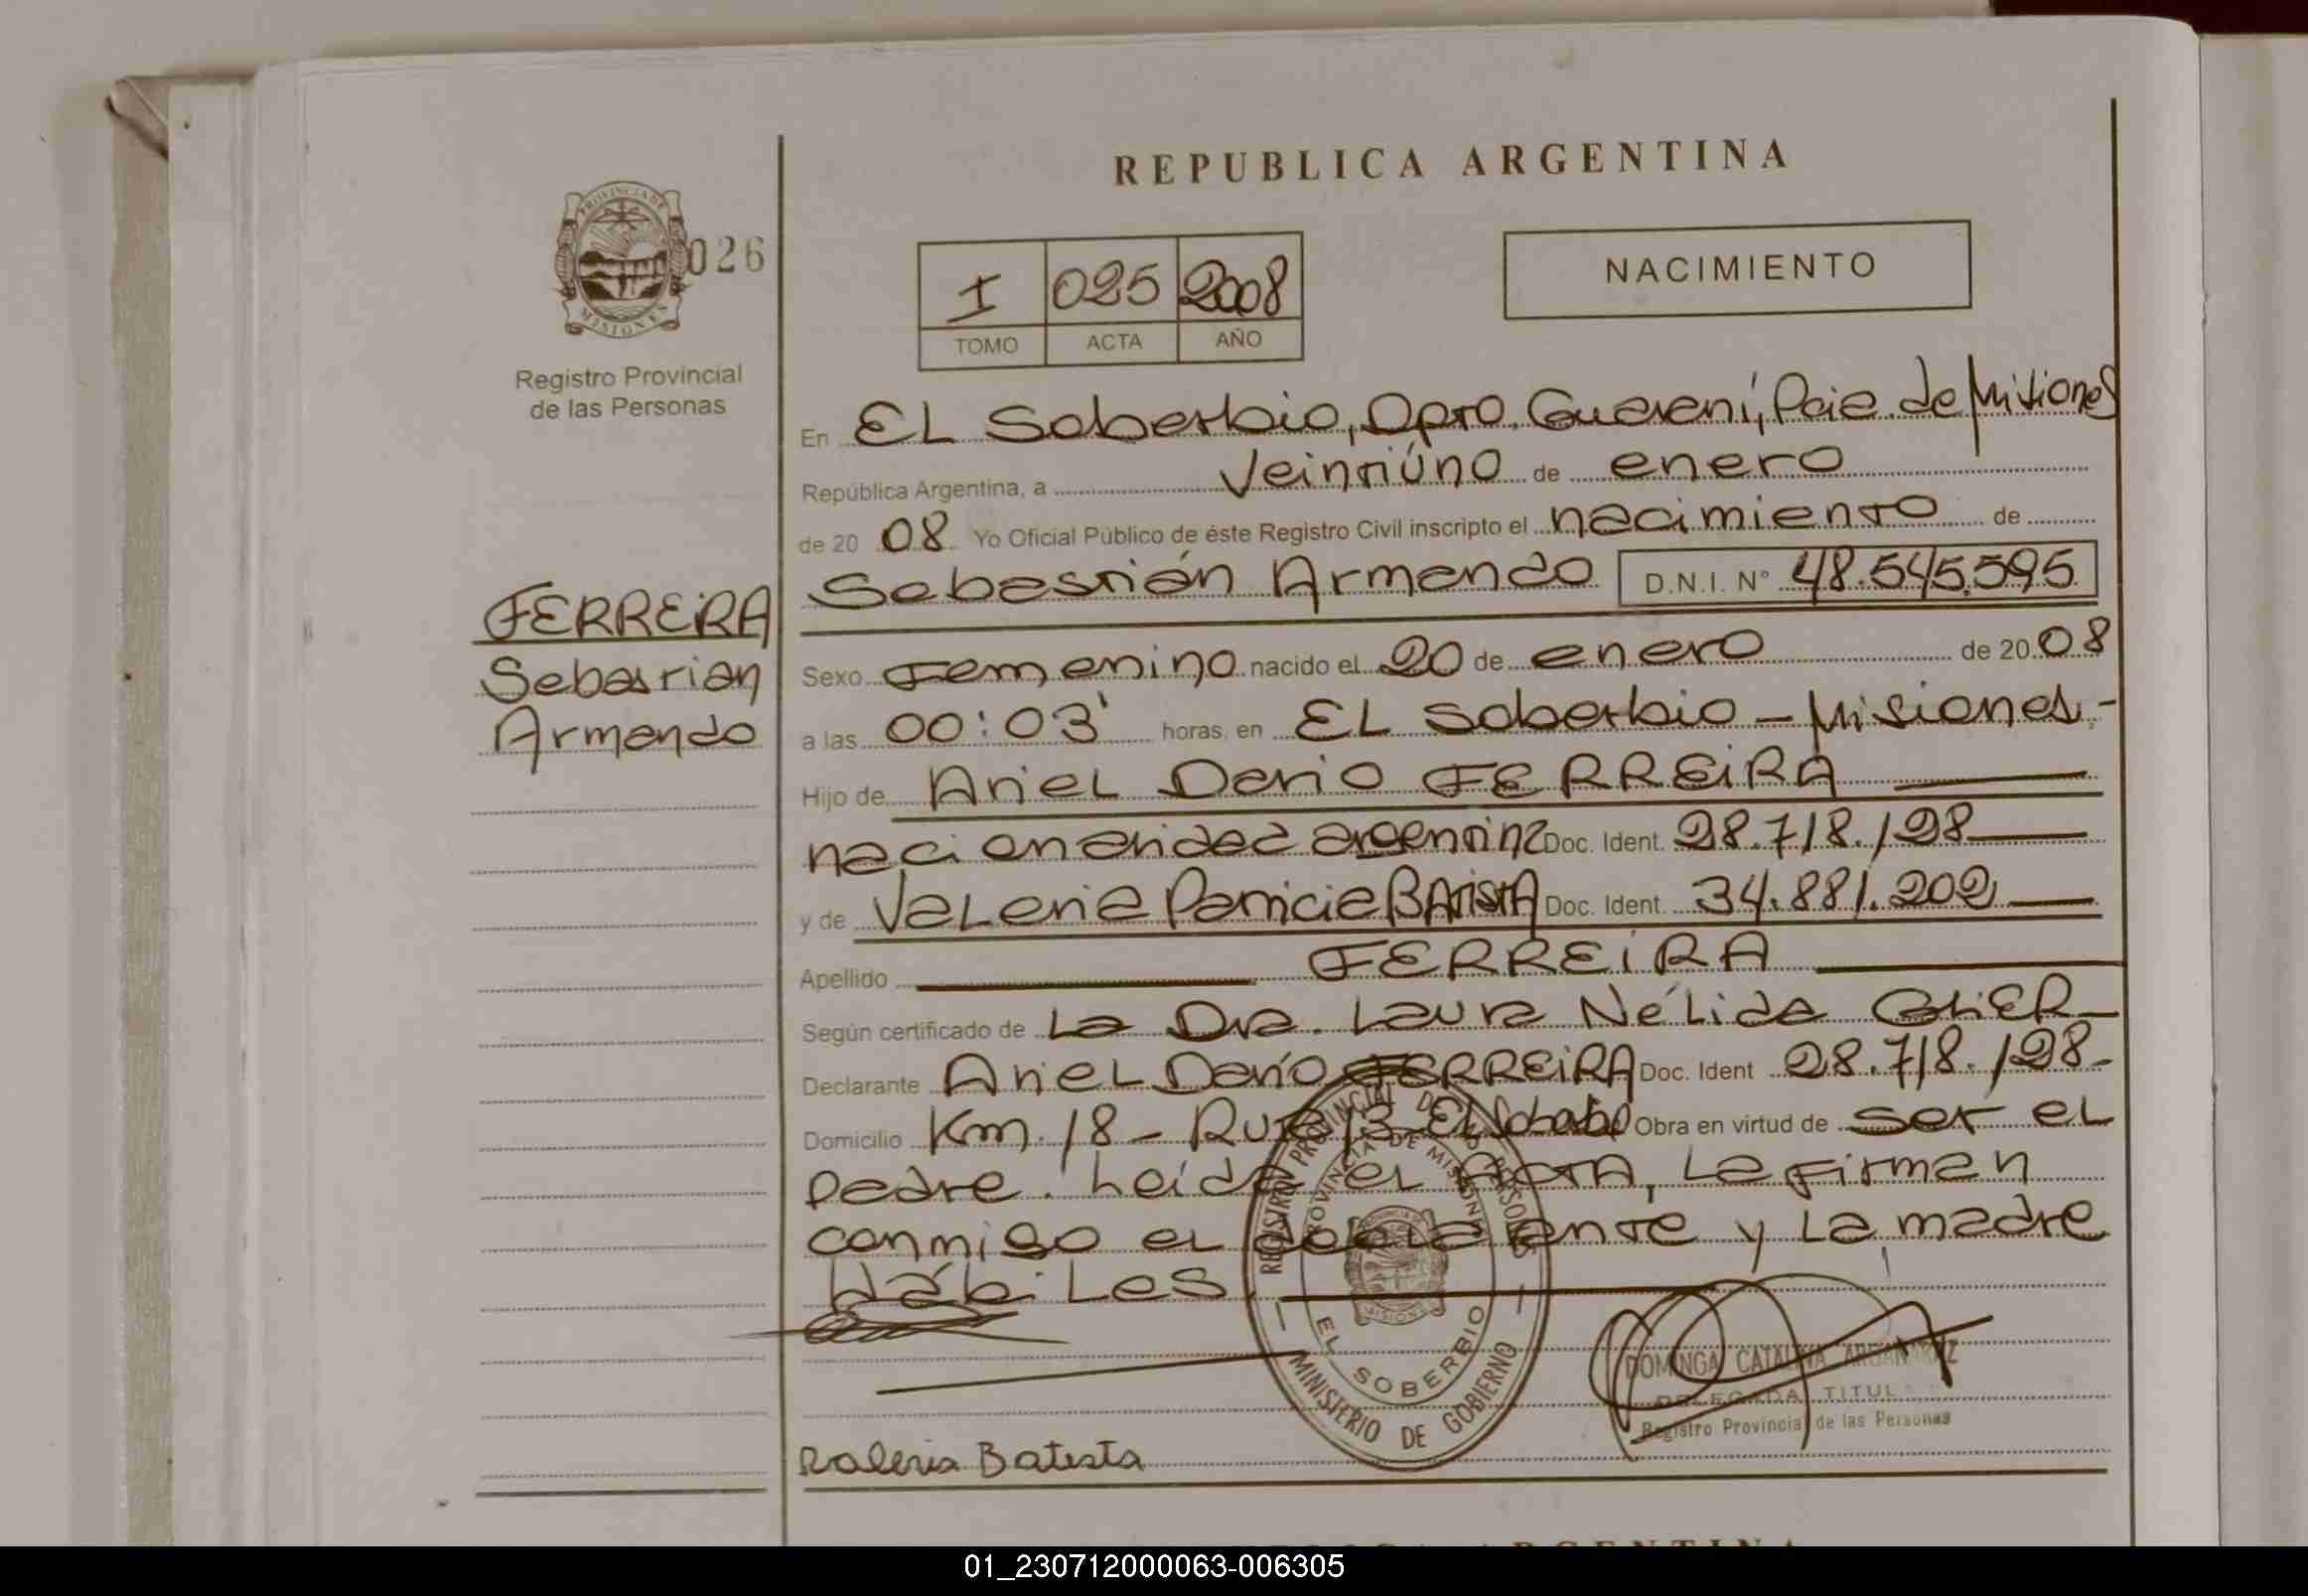 REPUBLICA ARGENTINA
PROVINCIA DE
MISIONES
026
Registro Provincial
de las Personas
I 025 2008
TOMO ACTA AÑO
NACIMIENTO
En EL Soberbio, Dpto. Guaraní, Pcia. de Misiones
República Argentina, a veintiúno de enero
de 20 08 Yo Oficial Público de éste Registro Civil inscripto el nacimiento de
Sebastián Armando D.N.I. N° 48.545.595
FERREIRA
Sebastian
Armando
Sexo Femenino nacido el 20 de enero de 20 08
a las 00:03' horas, en EL Soberbio - Misiones.-
Hijo de Ariel Dario FERREIRA
nacionalidad argentina Doc. Ident. 28.718.128
y de Valeria Patricia BATISTA Doc. Ident. 34.881.202
Apellido FERREIRA
Según certificado de La Dra. Laura Nélida
Declarante Ariel Darío FERREIRA Doc. Ident 28.718.128.-
Domicilio Km. 18 - Ruta 13 El Soberbio Obra en virtud de ser el
padre. Leída el ACTA, la firman
conmigo el declarante y la madre
Hábiles.
REGISTRO PROVINCIAL DE LAS PERSONAS
PROVINCIA DE MISIONES
EL SOBERBIO
MINISTERIO DE GOBIERNO
DOMINGA CATALINA
DELEGADA TITUL
Registro Provincial de las Personas
Valeria Batista
01_230712000063-006305